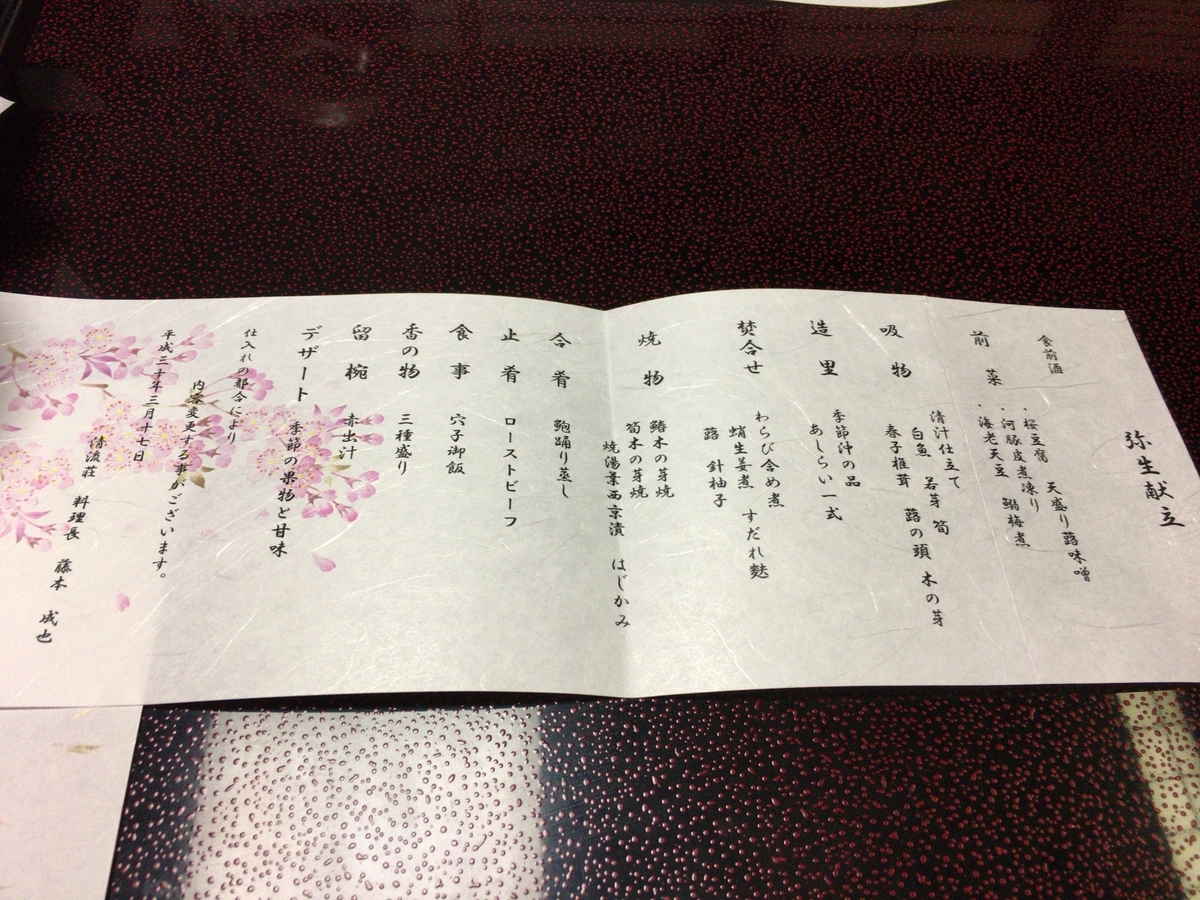 弥生献立
食前酒
前菜
・桜豆腐 天盛り蕗味噌
・河豚皮煮凍り
・海老天豆 鰯梅煮
吸物
清汁仕立て
白魚 若芽 筍
春子椎茸 蕗の頭 木の芽
造里
季節汁の品
あしらい一式
焚合せ
わらび含め煮
蛸生姜煮 すだれ麩
蕗 針柚子
焼物
鰆木の芽焼
筍木の芽焼
焼湯葉西京漬 はじかみ
合肴
鮑踊り蒸し
止肴
ローストビーフ
食事
穴子御飯
香の物
三種盛り
留椀
赤出汁
デザート
季節の果物と甘味
仕入れの都合により
内容変更する事がございます。
平成三十年三月十七日
清流荘 料理長 藤本 成也